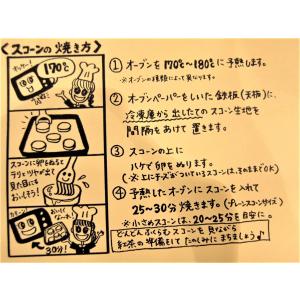 〈スコーンの焼き方〉
170℃
① オーブンを170℃〜180℃に予熱します。
※オーブンの種類によって異なります。
② オーブンペーパーをしいた鉄板(天板)に、
冷凍庫から出したてのスコーン生地を
間隔をあけて置きます。
スコーンに卵をぬると
テリとツヤが出て
見た目にも
おいしそう!
③ スコーンの上に
ハケで卵をぬります。
(※上にチーズがついているスコーンは、そのままでOK)
④ 予熱したオーブンにスコーンを入れて
25〜30分焼きます。(プレーンスコーンサイズ)
※小さめスコーンは、20〜25分を目安に。
30分!
どんどんふくらむスコーンを見ながら
紅茶の準備をしてたのしみにまちましょう♪